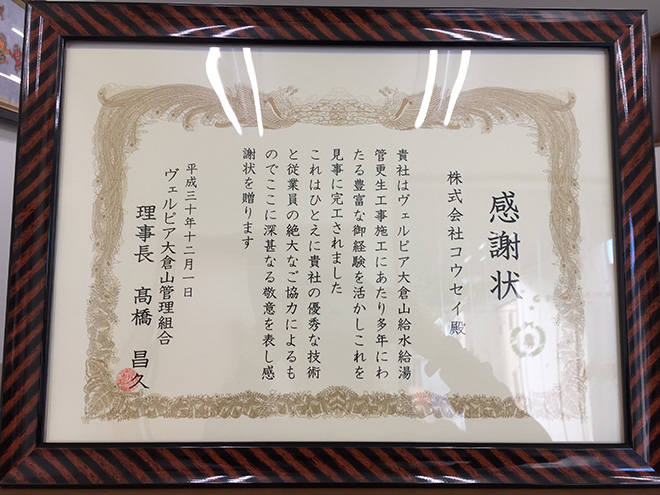 感謝状
株式会社コウセイ殿
貴社はヴェルピア大倉山給水給湯
管更生工事施工にあたり多年にわ
たる豊富な御経験を活かしこれを
見事に完工されました
これはひとえに貴社の優秀な技術
と従業員の絶大なご協力によるも
のでここに深甚なる敬意を表し感
謝状を贈ります
平成三十年十二月一日
ヴェルピア大倉山管理組合
理事長 髙橋 昌久